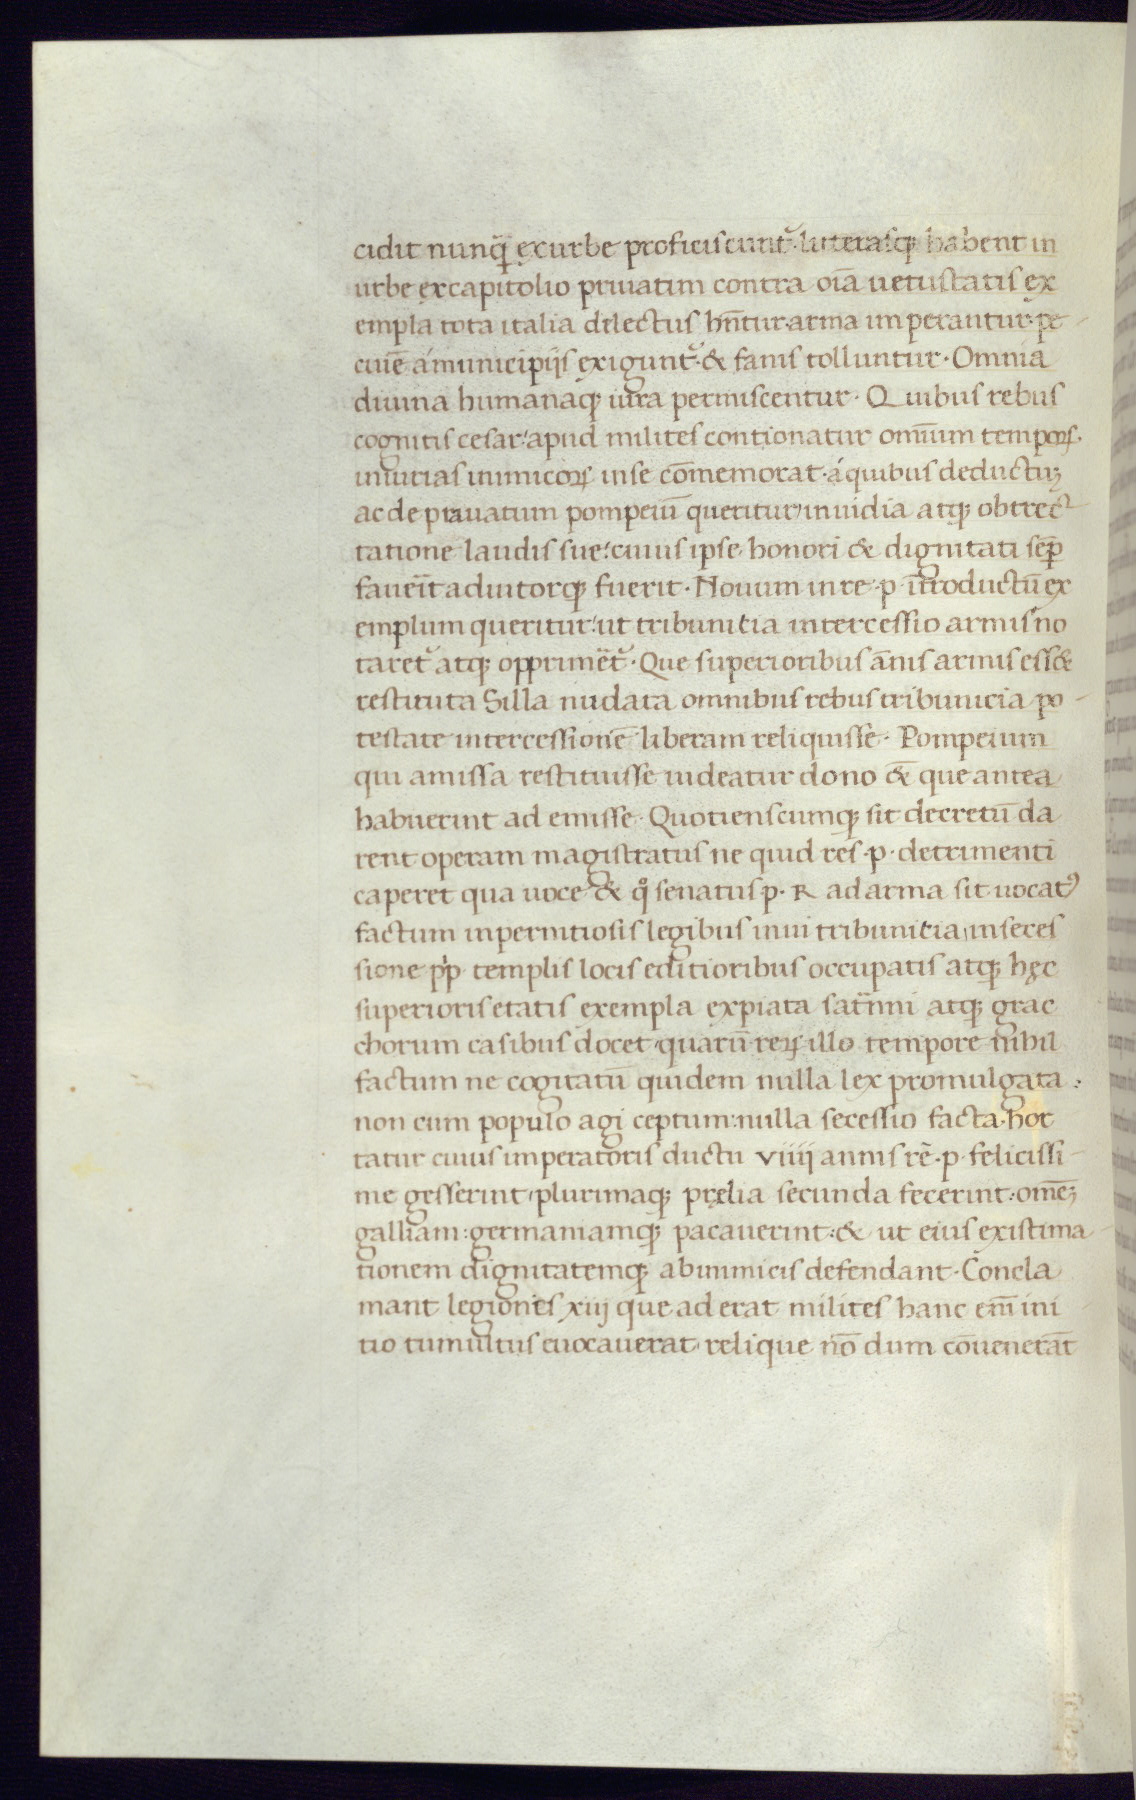 cidit nunqᷓ ex urbe proficiscunt᷑· litterasqꝫ habent in
urbe ex capitolio priuatim contra oīa uetustatis ex
empla tota italia dilectus hn̄tur·arma imperantur·pe-
cuiē á municipijs exigunt᷑·& fanis tolluntur· Omnia
diuina humanaqꝫ iura permiscentur· Quibus rebus
cognitis cesar:apud milites contionatur omīum tempoꝝ·
iniurias inimicoꝝ in se cōmemorat·á quibus deductuꝫ
ac de prauatum pompeiū queritur inuidia atqꝫ obtrec-
tatione laudis sue:cuius ipse honori & dignitati semp̄
faueīt adiutorqꝫ fuerit· Nouum in re·p·ītroductū ex
emplum queritur:ut tribunitia intercessio armis no
taret᷑ atqꝫ opprimēt᷑· Que superioribus ānis armis ess&
restituta Silla nudata omnibus rebus tribunicia po-
testate intercessionē liberam reliquisse· Pompeium
qui amissa restituisse uideatur dono ēt que antea
habuerint ad emisse· Quotienscumqꝫ sit decretū da
rent operam magistratus ne quid res·p·detrimenti
caperet qua uoce & qͦ senatus p·R ad arma sit uocatꝰ
factum in pernitiosis legibus in ui tribunitia in seces
sione pp̄ templis locis editioribus occupatis atqꝫ hęc
superioris etatis exempla expiata saturnini atqꝫ grac
chorum casibus docet quarū reꝝ illo tempore nihil
factum ne cogitatū quidem nulla lex promulgata:
non cum populo agi ceptum:nulla secessio facta·hor
tatur cuius imperatoris ductu viiii annis rē·p·felicissi-
me gesserint plurimaqꝫ pręlia secunda fecerint:omēꝫ
galliam:germaniamqꝫ pacauerint:& ut eius existima-
tionem dignitatemqꝫ ab inimicis defendant· Concla
mant legionis xiij que ad erat milites hanc em̄ ini-
tio tumultus euocauerat relique nō dum cōuenerāt